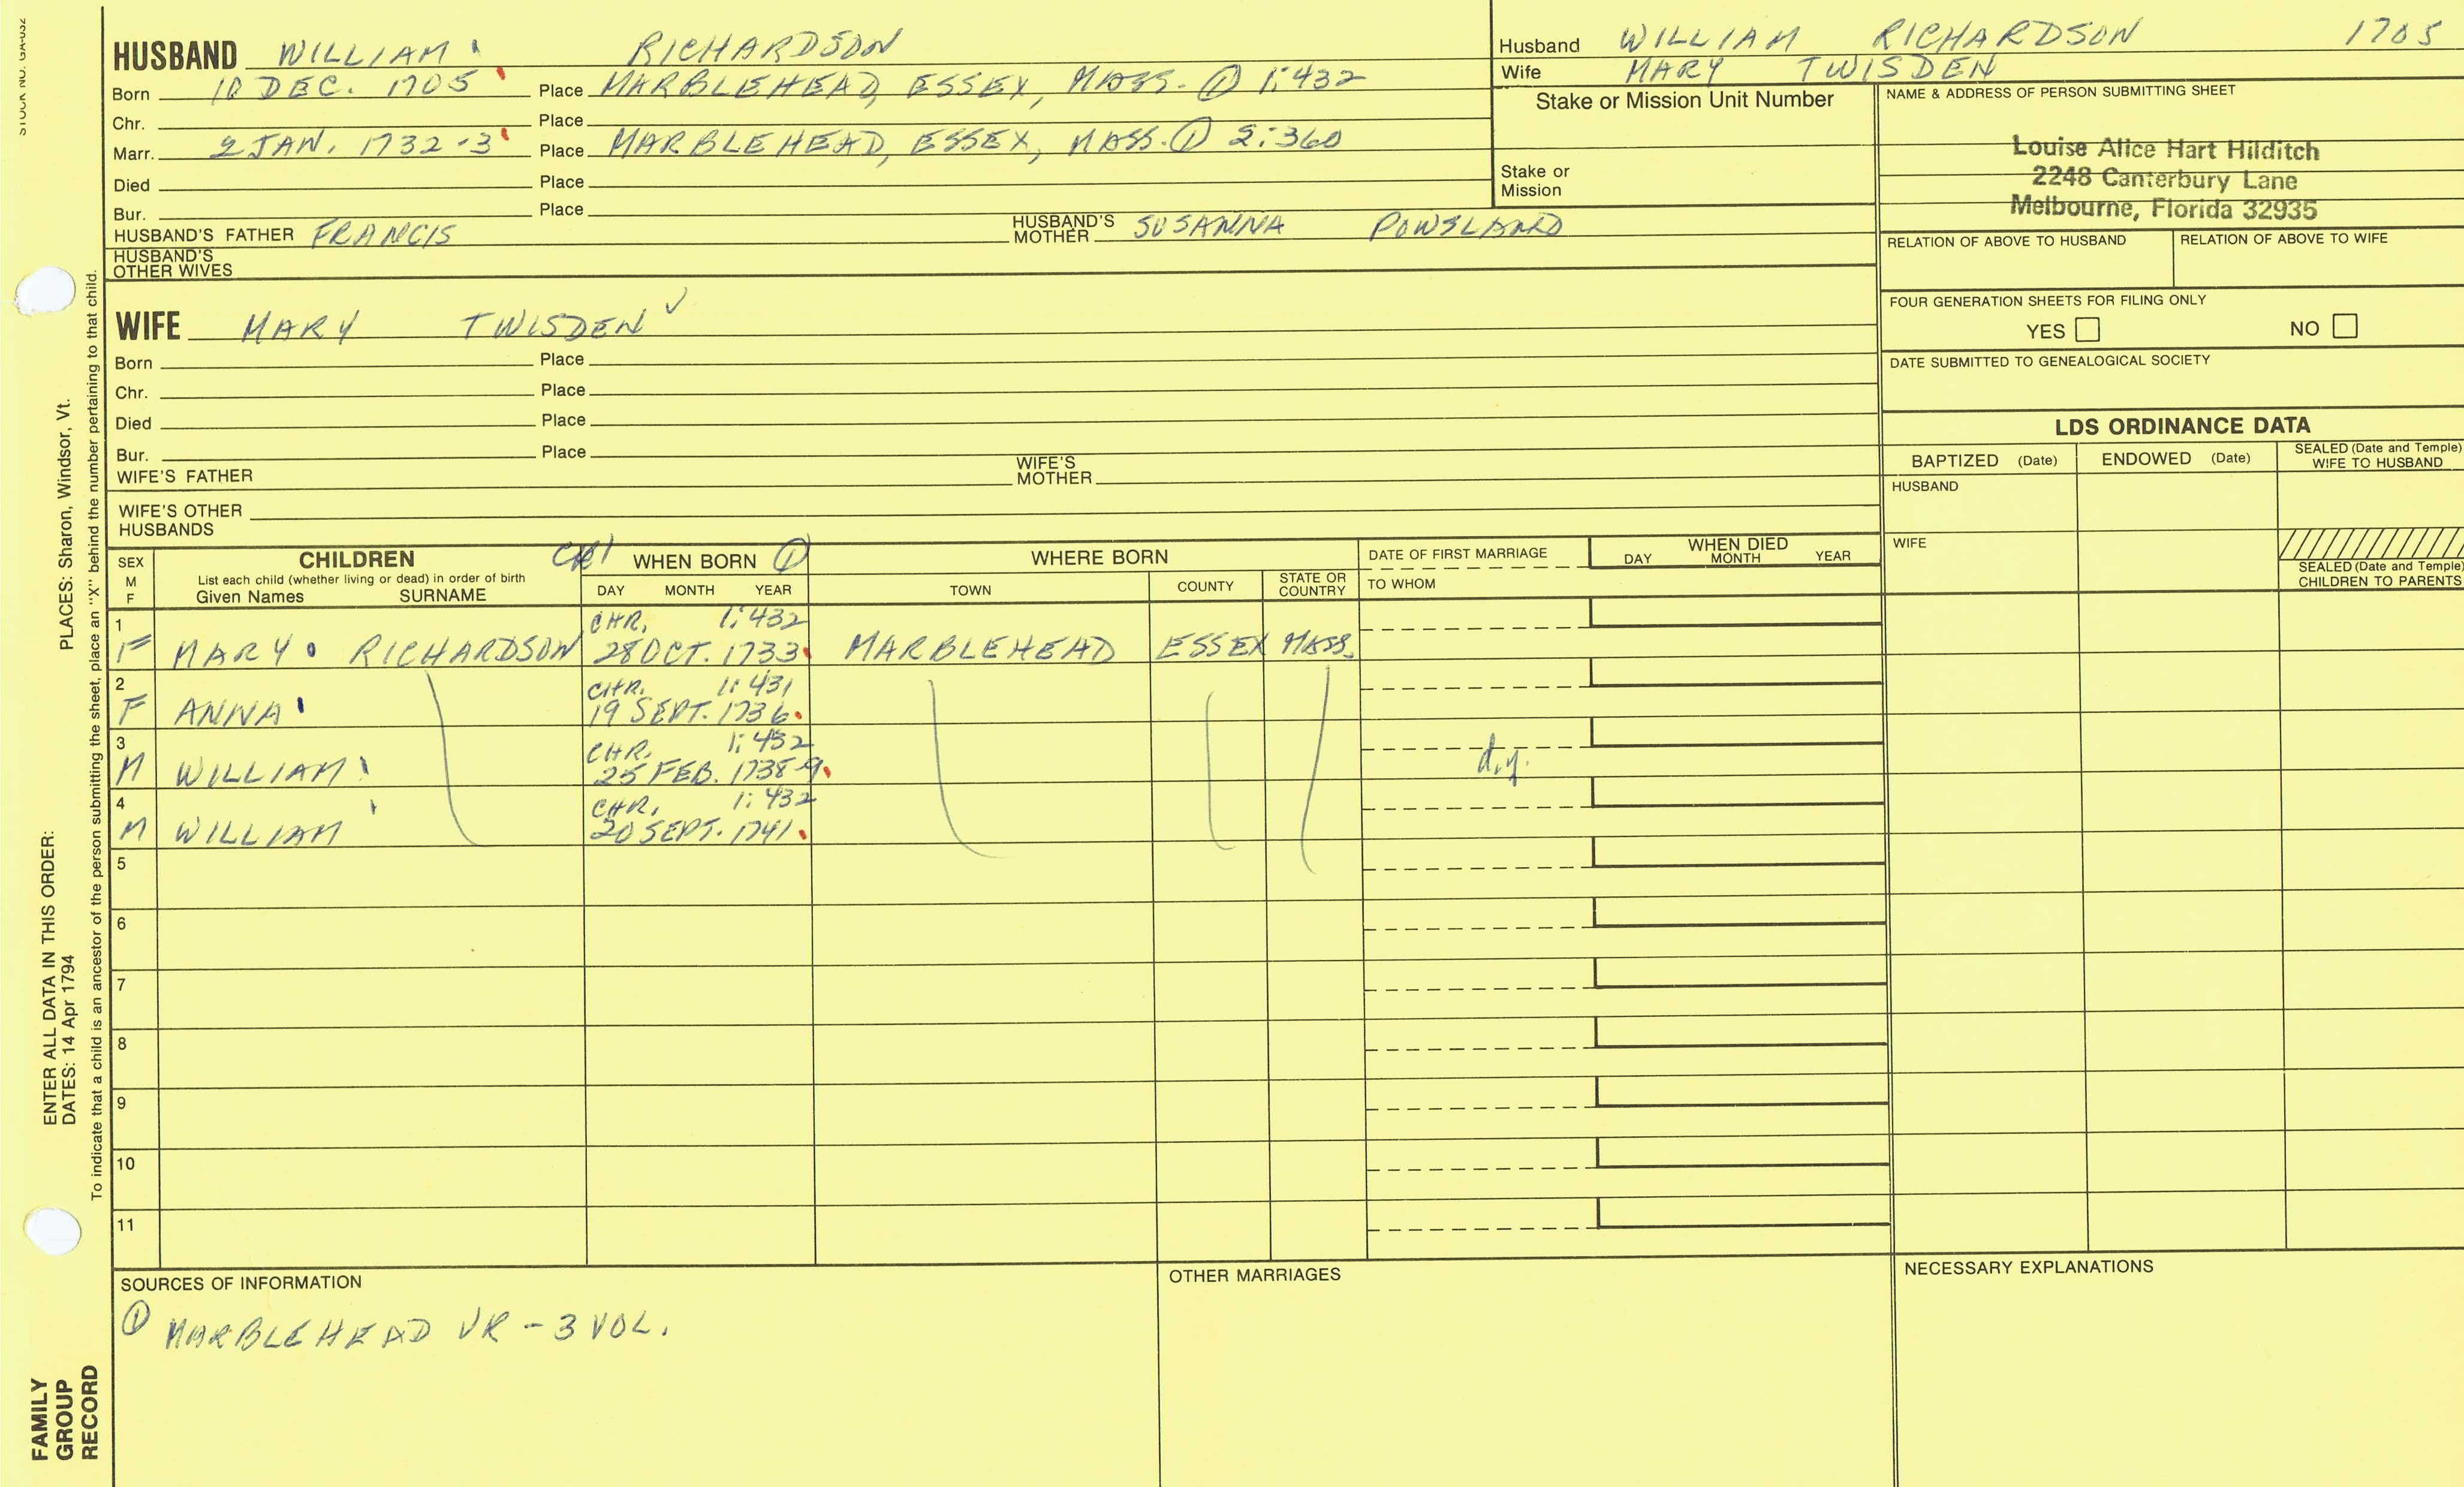 STOCK NO. GA-032
HUSBAND WILLIAM RICHARDSON
Born 10 DEC. 1705 Place MARBLEHEAD, ESSEX, MASS. ① 1:432
Chr. Place
Marr. 2 JAN. 1732-3 Place MARBLEHEAD, ESSEX, MASS. ① 2:360
Died Place
Bur. Place
HUSBAND'S FATHER FRANCIS HUSBAND'S MOTHER SUSANNA POWSLAND
HUSBAND'S OTHER WIVES
Husband WILLIAM RICHARDSON 1705
Wife MARY TWISDEN
Stake or Mission Unit Number
Stake or Mission
NAME & ADDRESS OF PERSON SUBMITTING SHEET
Louise Alice Hart Hilditch
2248 Canterbury Lane
Melbourne, Florida 32935
RELATION OF ABOVE TO HUSBAND RELATION OF ABOVE TO WIFE
FOUR GENERATION SHEETS FOR FILING ONLY
YES NO
DATE SUBMITTED TO GENEALOGICAL SOCIETY
WIFE MARY TWISDEN ✓
Born Place
Chr. Place
Died Place
Bur. Place
WIFE'S FATHER WIFE'S MOTHER
WIFE'S OTHER HUSBANDS
LDS ORDINANCE DATA
BAPTIZED (Date) ENDOWED (Date) SEALED (Date and Temple) WIFE TO HUSBAND
HUSBAND
WIFE
SEALED (Date and Temple) CHILDREN TO PARENTS
SEX M F CHILDREN WHEN BORN ① WHERE BORN DATE OF FIRST MARRIAGE WHEN DIED
List each child (whether living or dead) in order of birth
Given Names SURNAME DAY MONTH YEAR TOWN COUNTY STATE OR COUNTRY TO WHOM DAY MONTH YEAR
1 CHR. 1:432
F MARY RICHARDSON 28 OCT. 1733 MARBLEHEAD ESSEX MASS.
2 CHR. 1:431
F ANNA 19 SEPT. 1736
3 CHR. 1:432
M WILLIAM 25 FEB. 1738-9 d.y.
4 CHR. 1:432
M WILLIAM 20 SEPT. 1741
5
6
7
8
9
10
11
SOURCES OF INFORMATION OTHER MARRIAGES NECESSARY EXPLANATIONS
① MARBLEHEAD VR - 3 VOL.
PLACES: Sharon, Windsor, Vt.
To indicate that a child is an ancestor of the person submitting the sheet, place an "X" behind the number pertaining to that child.
ENTER ALL DATA IN THIS ORDER:
DATES: 14 Apr 1794
FAMILY
GROUP
RECORD